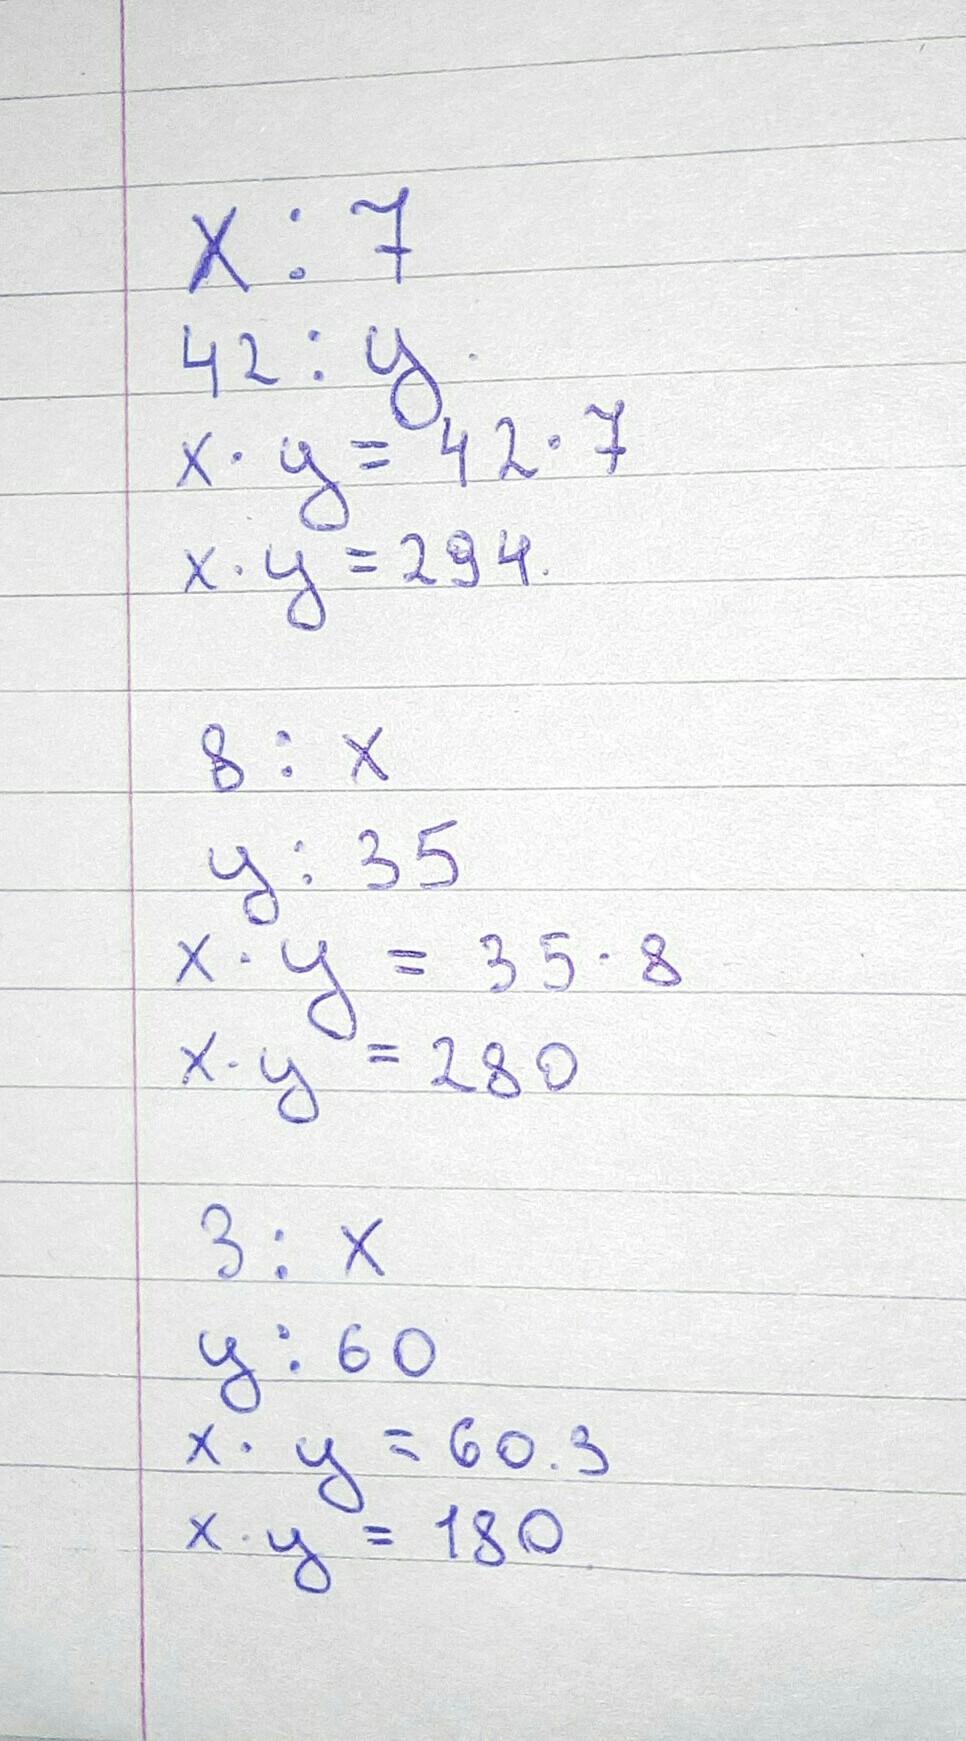 x : 7
42 : y
x · y = 42 · 7
x · y = 294.
8 : x
y : 35
x · y = 35 · 8
x · y = 280
3 : x
y : 60
x · y = 60 . 3
x · y = 180